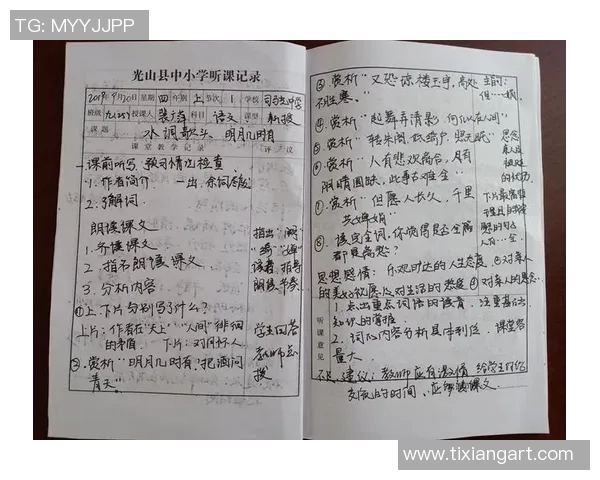 TG: MYYJJPP
光山县中小学听课记录
2019年9月20日 星期四 年级 上 节次 1 学校 司马光中学
班级 九(25) 授课人 科目 语文 课型 新授
课题 水调歌头·明月几时有
课堂教学记录 评议
一课前听写、预习情况检查
1. 作者简介 一出
2. 了解词
朗读课文
1. 齐读课文 指出
2. 指名朗读课文 读音、指导
3. 分析内容 朗读、节奏
①上、下片分别写了什么?
上片:作者在"天上""人间"徘徊 学生回答
的矛盾 下片:对月怀人 教师点
②.赏析"明月几时有,把酒问 拨
青天"
③.赏析"又恐琼楼玉宇,高处
不胜寒。"
④.赏析"起舞弄清影,何似在人间"
⑤.赏析"转朱阁,低绮户,照无眠" 思念
⑥.赏析"人有悲欢离合,月有
阴晴圆缺,此事古难全"
⑦.赏析"但愿人长久,千里
共婵娟"
⑧.读完全词,你觉得是否全篇
都是离愁?
思想感情:乐观旷达的人生态度 ②对亲人
的美好祝愿 对生活的热爱 ④对亲人的思念
听课意见
1. 点出重点词语的读音,注重基础
知识的掌握
2. 词心内容分析具体到位,课堂容
量大。
建议:教师应有激情 给学生
交流的时间、应 课文
www.tixiangart.com